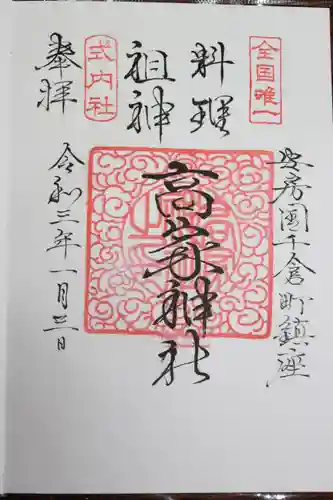 全国唯一
料理
祖神
式内社
奉拝
安房国千倉町鎮座
高家神社
令和三年一月三日